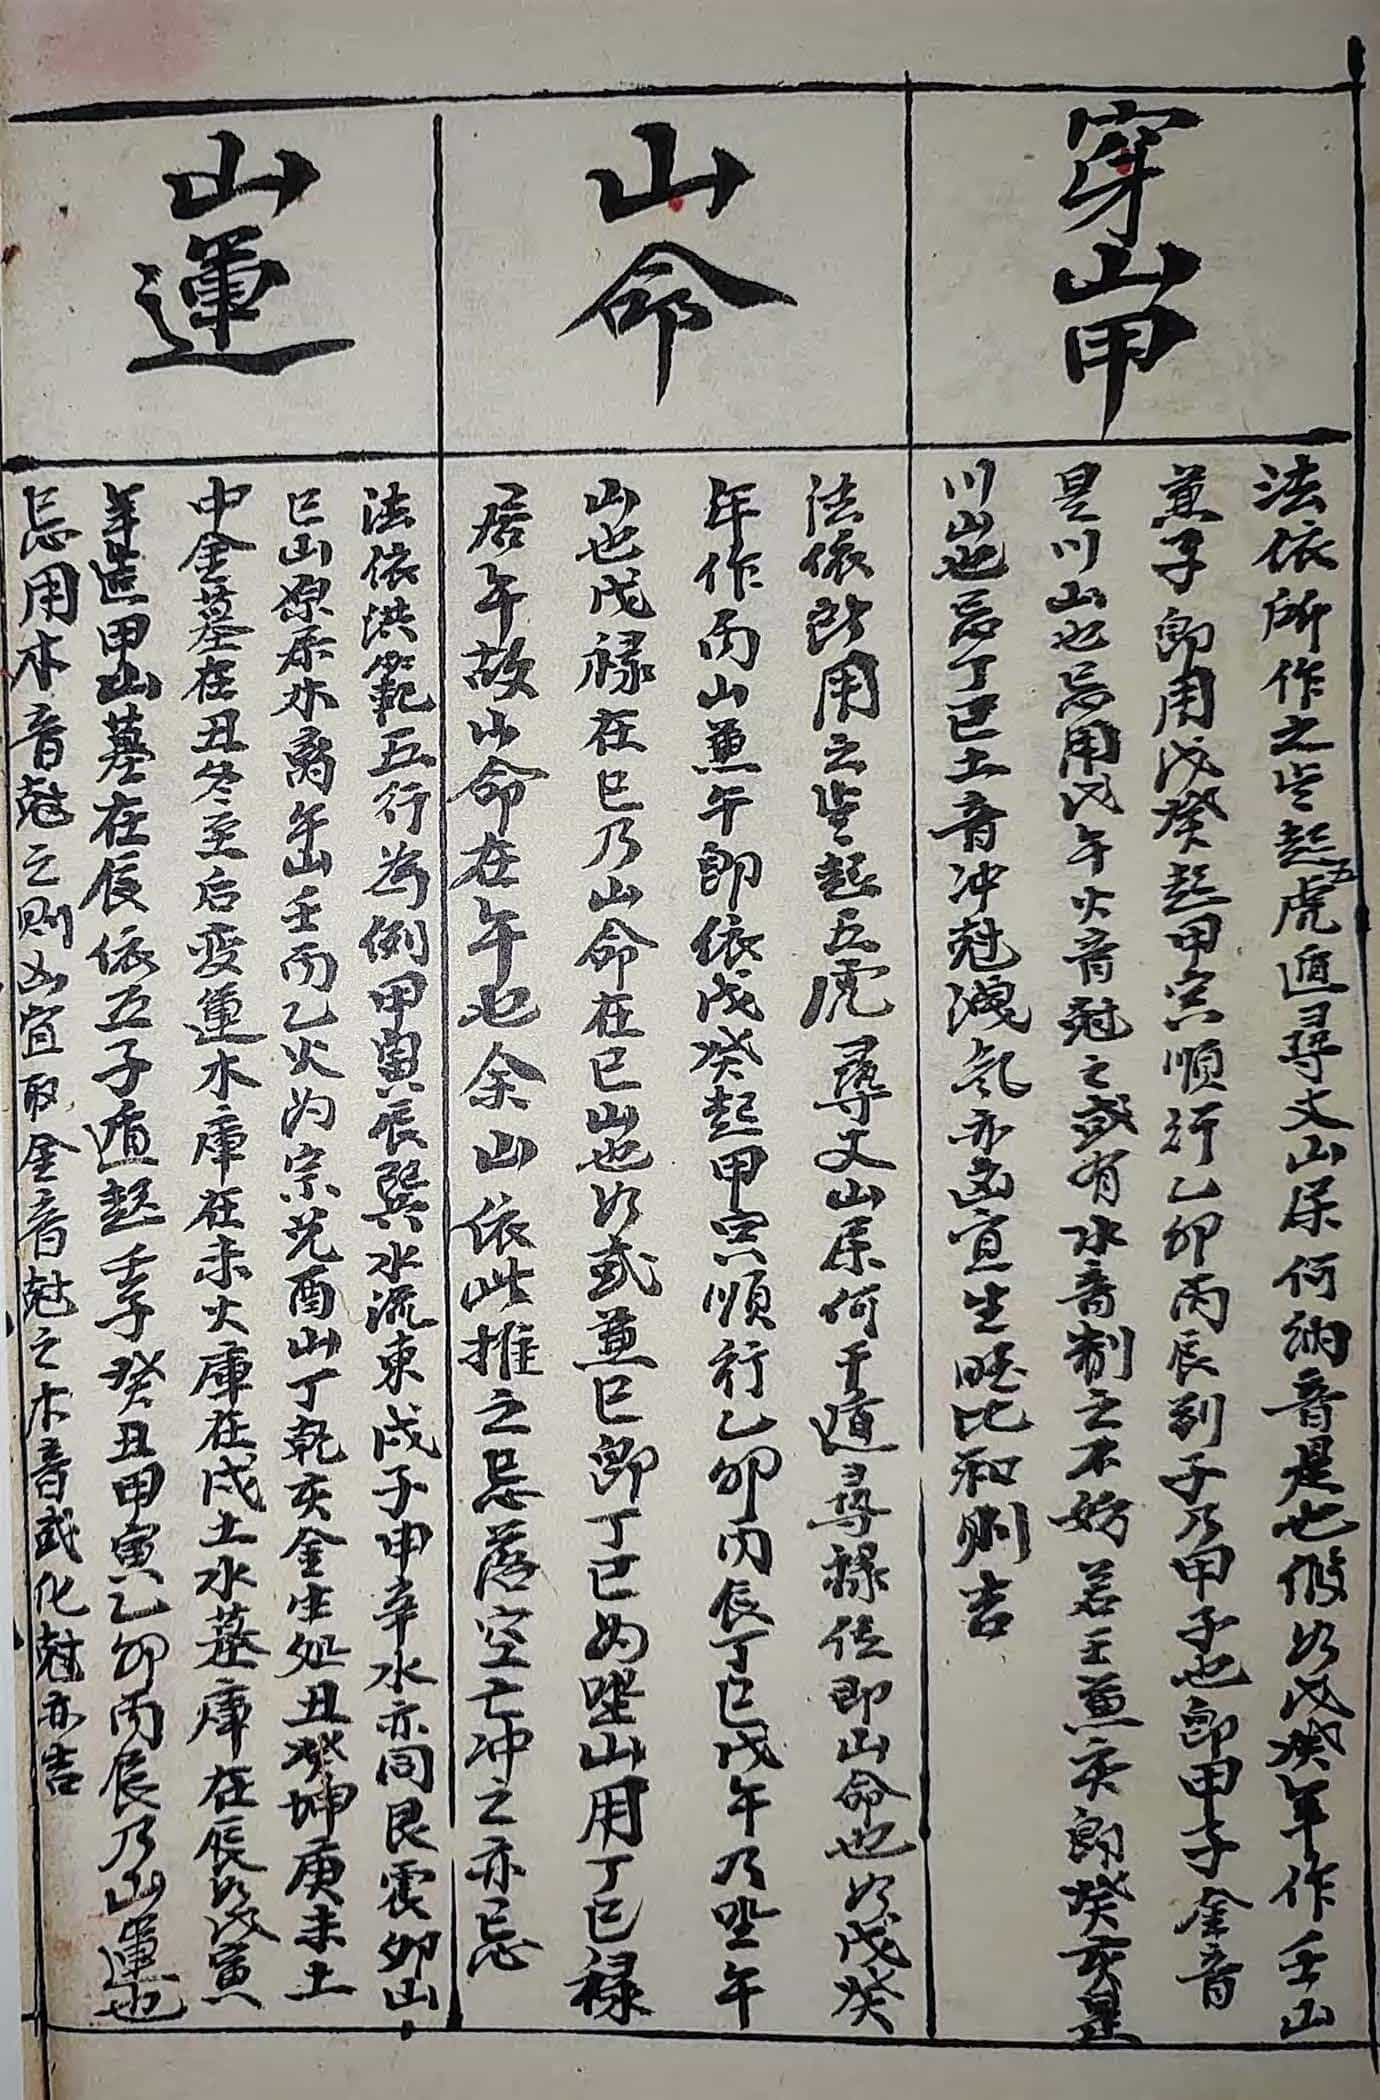 穿山甲
法依所作之岁起五虎遁尋丈山屬何納音是也假如戊癸年作壬山
兼子即用戊癸起甲寅順行乙卯丙辰到子乃甲子也即甲子金音
是川山也忌用戊午火音尅之或有水音制之不妨若壬兼亥即癸亥是
川山也忌丁巳土音冲尅洩氣亦凶宜生旺比和則吉
山命
法依所用之岁起五虎尋丈山屬何干遁尋祿位即山命也如戊癸
年作丙山兼午即依戊癸起甲寅順行乙卯丙辰丁巳戊午乃坐午
山也戊祿在巳乃山命在巳山也如或兼巳即丁巳為坐山用丁巳祿
居午故山命在午也余山依此推之忌落空亡冲之亦忌
山運
法依洪範五行為例甲寅辰巽水流東戌子申辛水亦同艮震卯山
巳山原屬木離午山壬丙乙火为宗兑酉山丁乾亥金生处丑癸坤庚未土
中金墓在丑冬至后变運木庫在未火庫在戌土水墓庫在辰如戊寅
年造甲山墓在辰依五子遁起壬子癸丑甲寅乙卯丙辰乃山運也
忌用木音尅之則凶宜取金音尅之木音或化尅亦吉